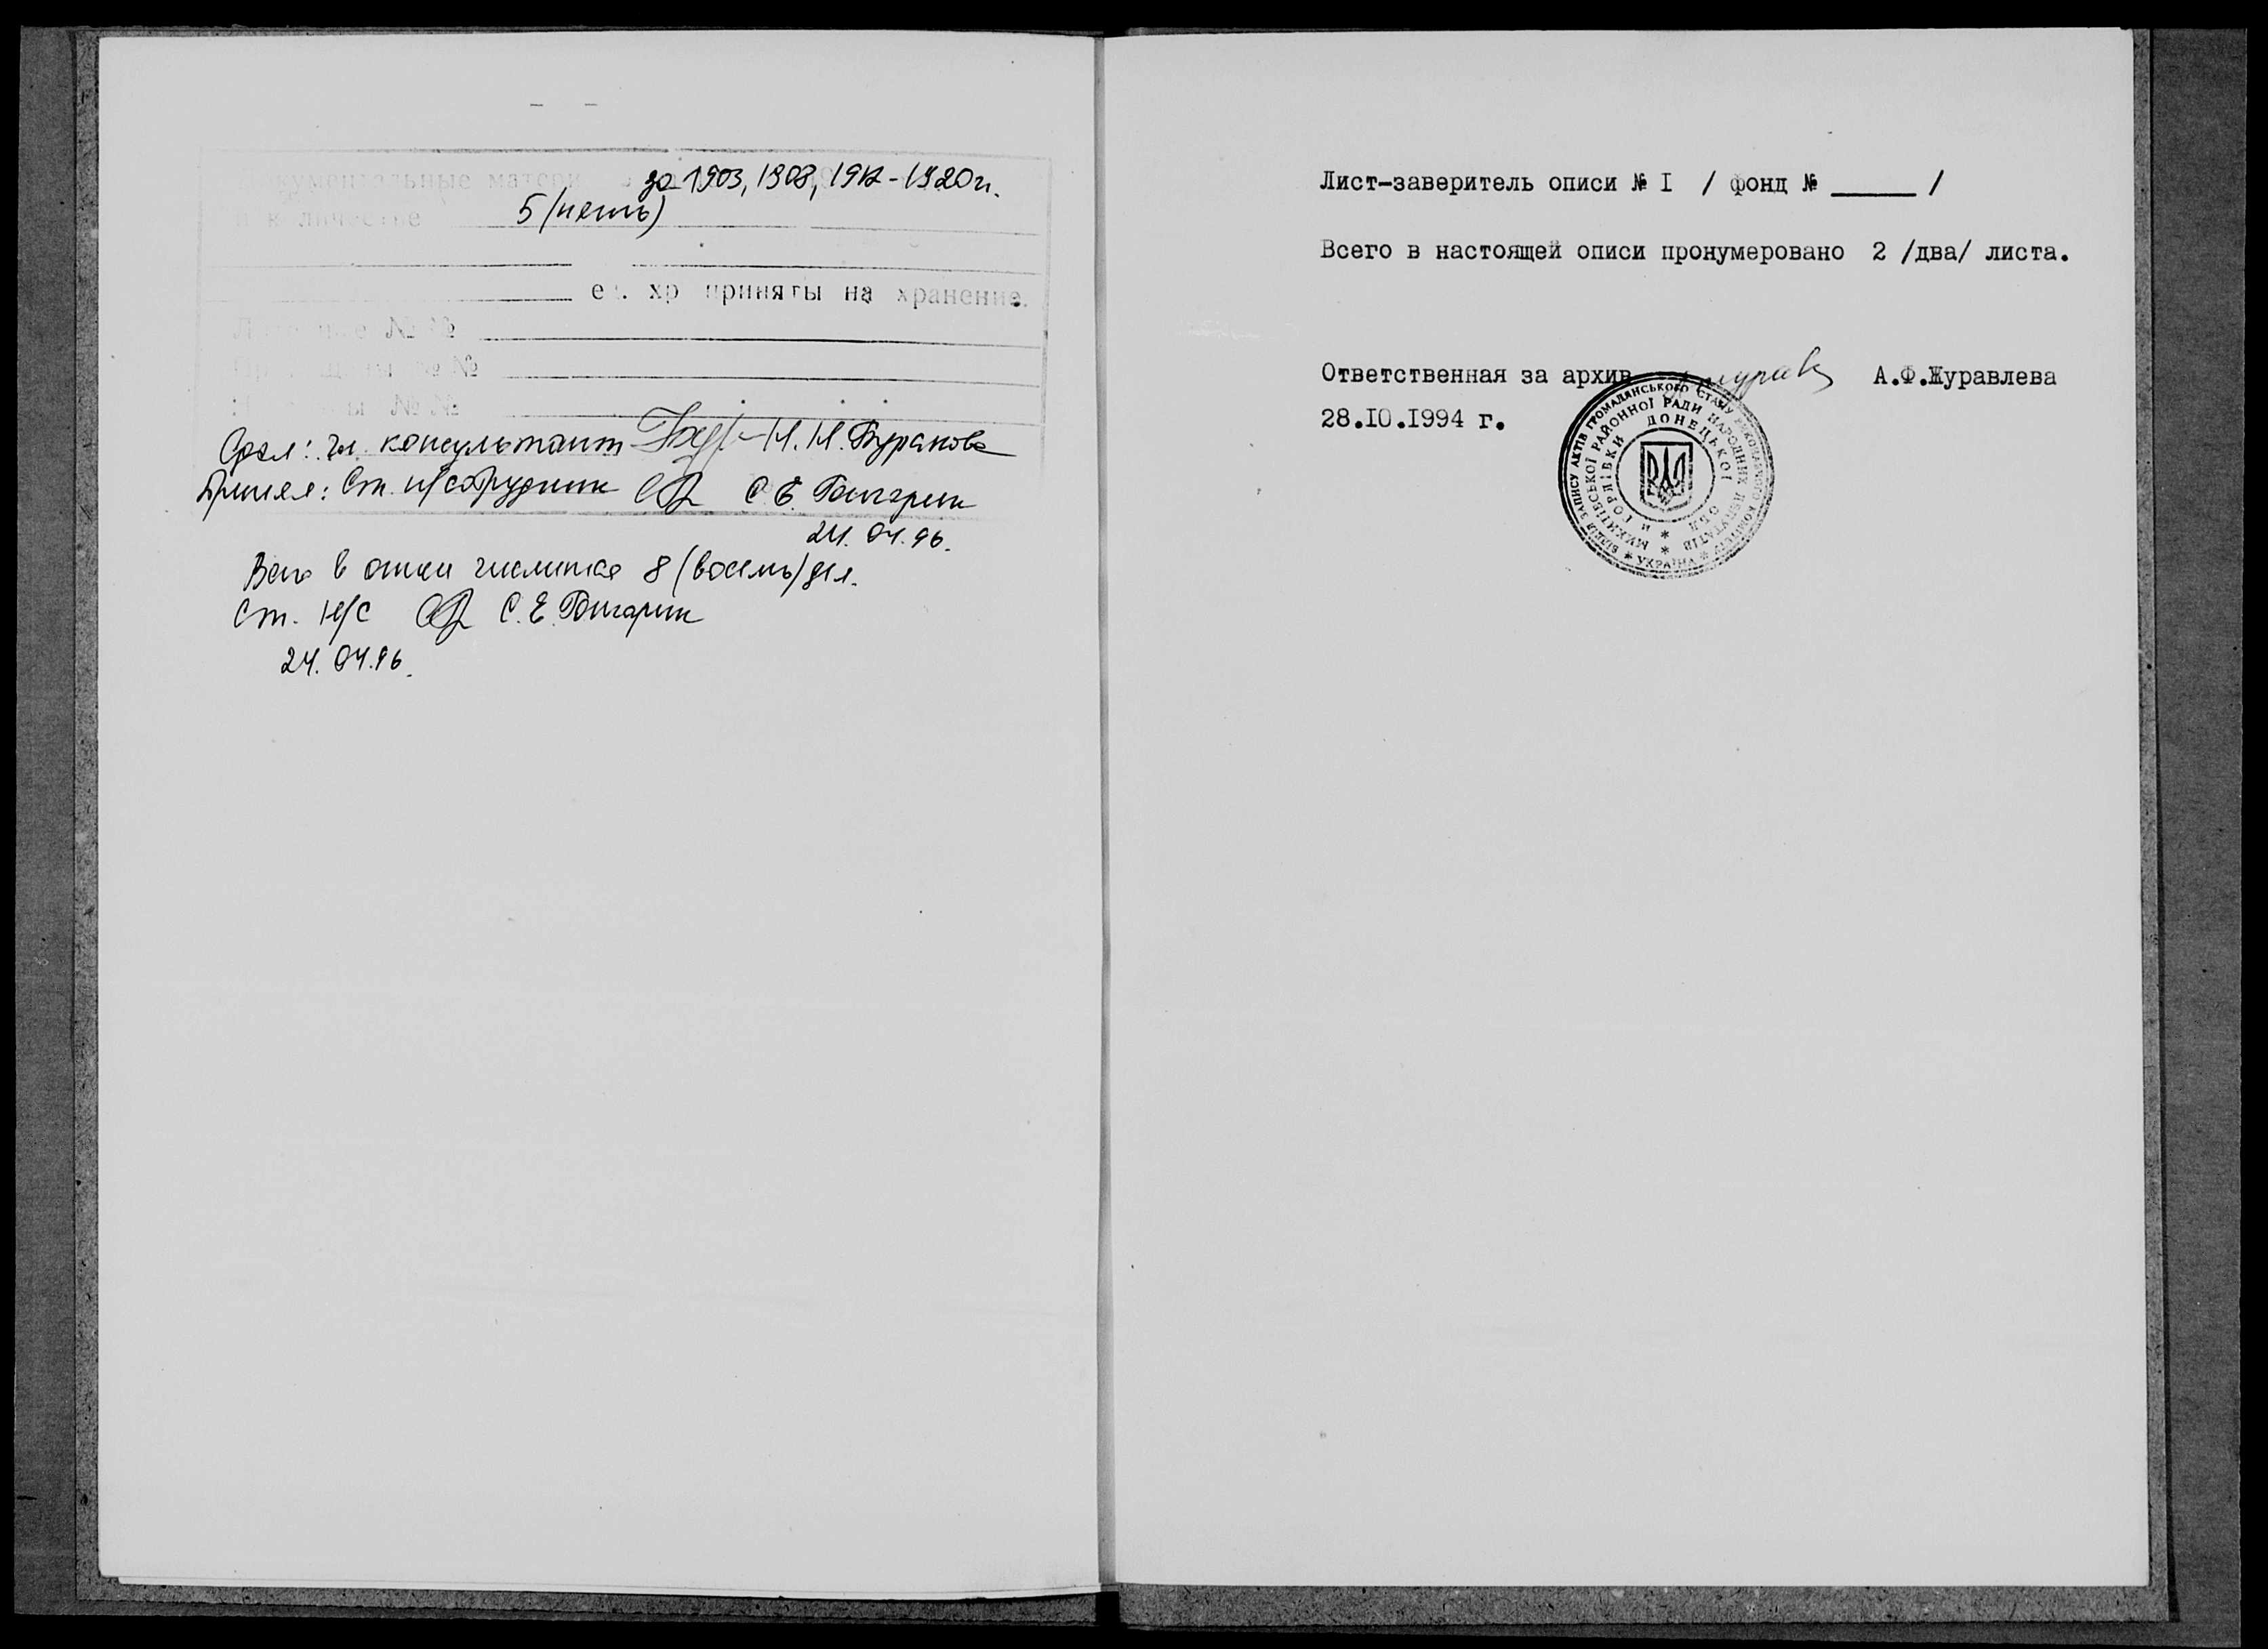 за 1903, 1908, 1912-1920 гг.
в количестве 5 (пять)
ед. хр приняты на хранение.
№ №
№ №
№ №
Сдал: гл. консультант Н.Н. Буракова
Принял: Ст. н/сотрудник С.Е.
24.04.96.
Всего в описи числится 8 (восемь) дел.
Ст. н/с С.Е.
24.04.96.
Лист-заверитель описи № I / фонд № ______ /
Всего в настоящей описи пронумеровано 2 /два/ листа.
Ответственная за архив А.Ф.Журавлева
28.IO.I994 г.
ВІДДІЛ ЗАПИСУ АКТІВ ГРОМАДЯНСЬКОГО СТАНУ ВИКОНАВЧОГО КОМІТЕТУ * УКРАЇНА *
МИКИТІВСЬКОЇ РАЙОННОЇ РАДИ НАРОДНИХ ДЕПУТАТІВ *
М. ГОРЛІВКИ ДОНЕЦЬКОЇ ОБЛ. *